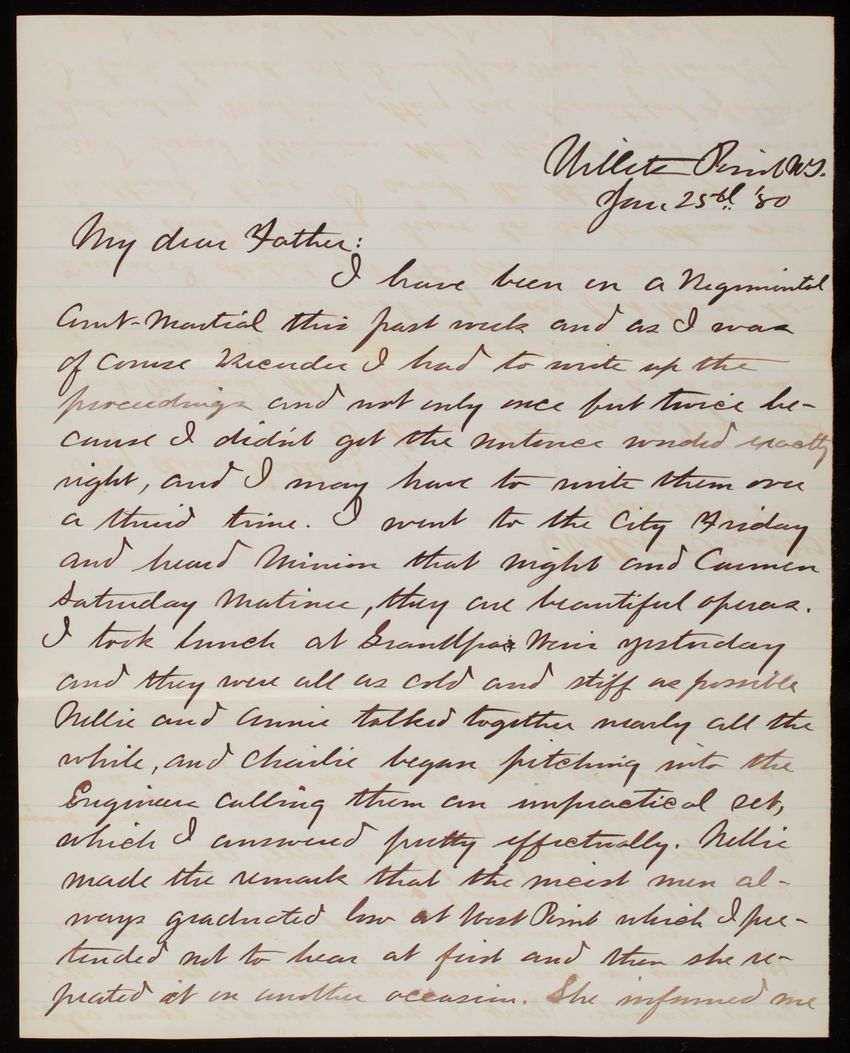 Willets Point N.Y.
Jan. 25th '80
My dear Father:
I have been on a Regimental
Court-Martial this past week and as I was
of course Recorder I had to write up the
proceedings and not only once but twice be-
cause I didn't get the sentence worded exactly
right, and I may have to write them over
a third time. I went to the City Friday
and heard Minion that night and Carmen
Saturday Matinee, they are beautiful operas.
I took lunch at Grandpa Weir's yesterday
and they were all as cold and stiff as possible
Nellie and Annie talked together nearly all the
while, and Charlie began pitching into the
Engineers calling them an unpractical set,
which I answered pretty effectually. Nellie
made the remark that the nicest men al-
ways graduated low at West Point which I pre-
tended not to hear at first and then she re-
peated it on another occasion. She informed me